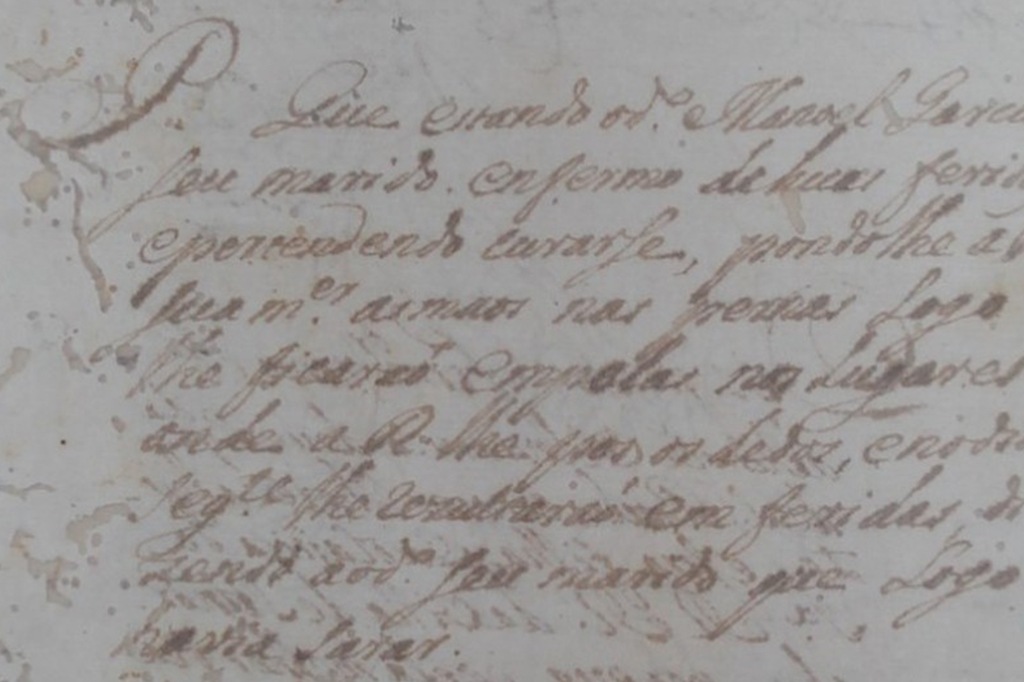 P. Que estando o d.º Manoel Garci
seu marido enfermo de huas ferid
e pertendendo curarse, pondolhe a
sua m.er as maos nas pernas logo
lhe ficarao empolas nos lugares
onde a R. lhe pos os dedos, e no di
seg.te lhe rezultarao em feridas, di
zendo ao d.º seu marido que logo
havia sarar.